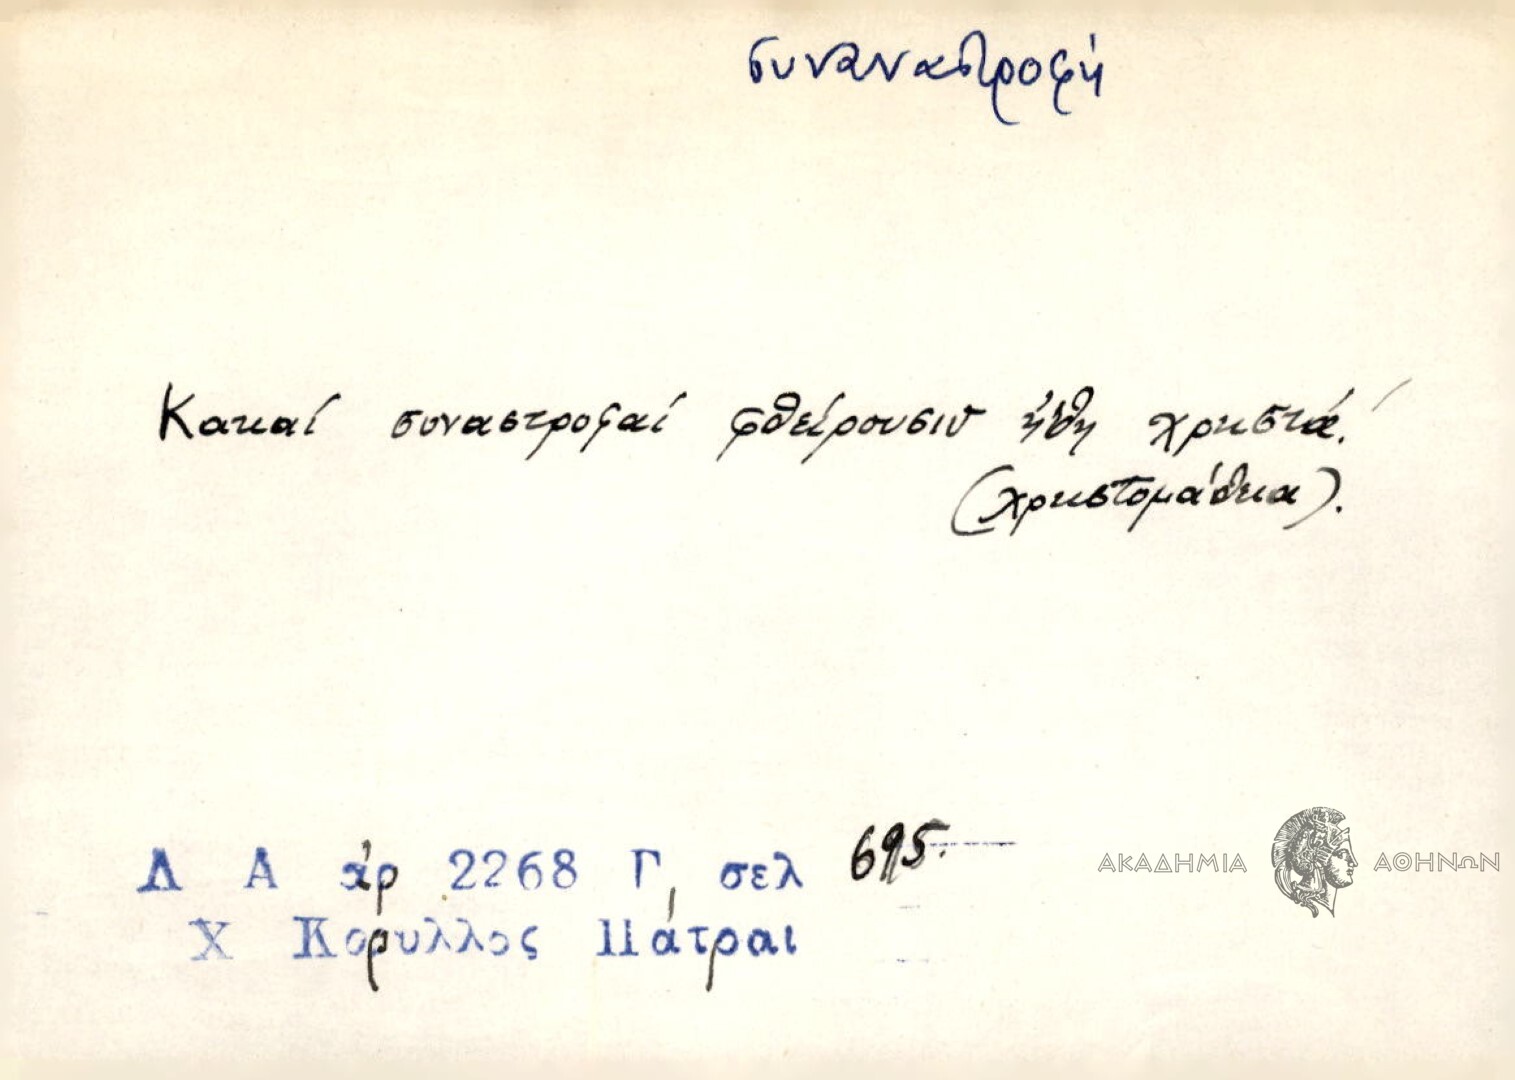 συναναστροφή
Κακαί συναστροφαί φθείρουσιν ήθη χρηστά!
(χρηστομάθεια).
Λ Α άρ 2268 Γ, σελ 695.
Χ Κορυλλος Πάτραι
ΑΚΑΔΗΜΙΑ ΑΘΗΝΩΝ